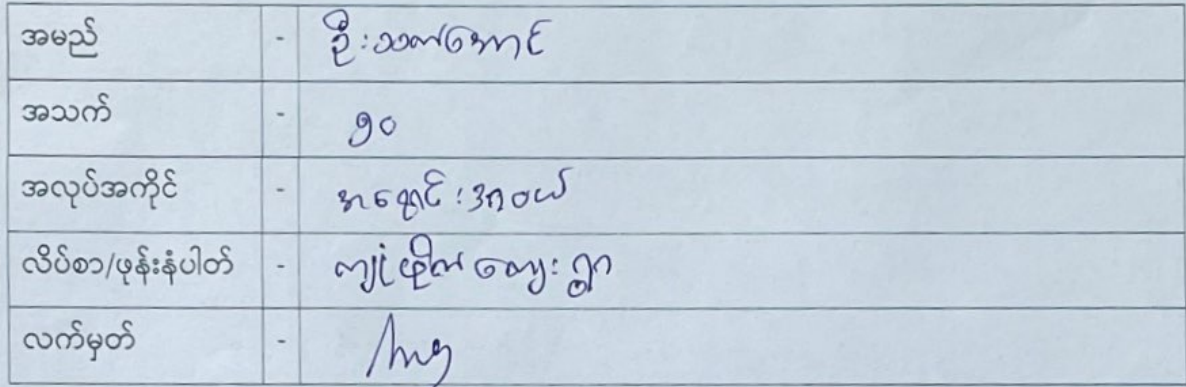 အမည် - ဦးသက်အောင်
အသက် - ၅၀
အလုပ်အကိုင် - အရောင်းအဝယ်
လိပ်စာ/ဖုန်းနံပါတ် - ကျုံဖိုက်ကျေးရွာ
လက်မှတ် -